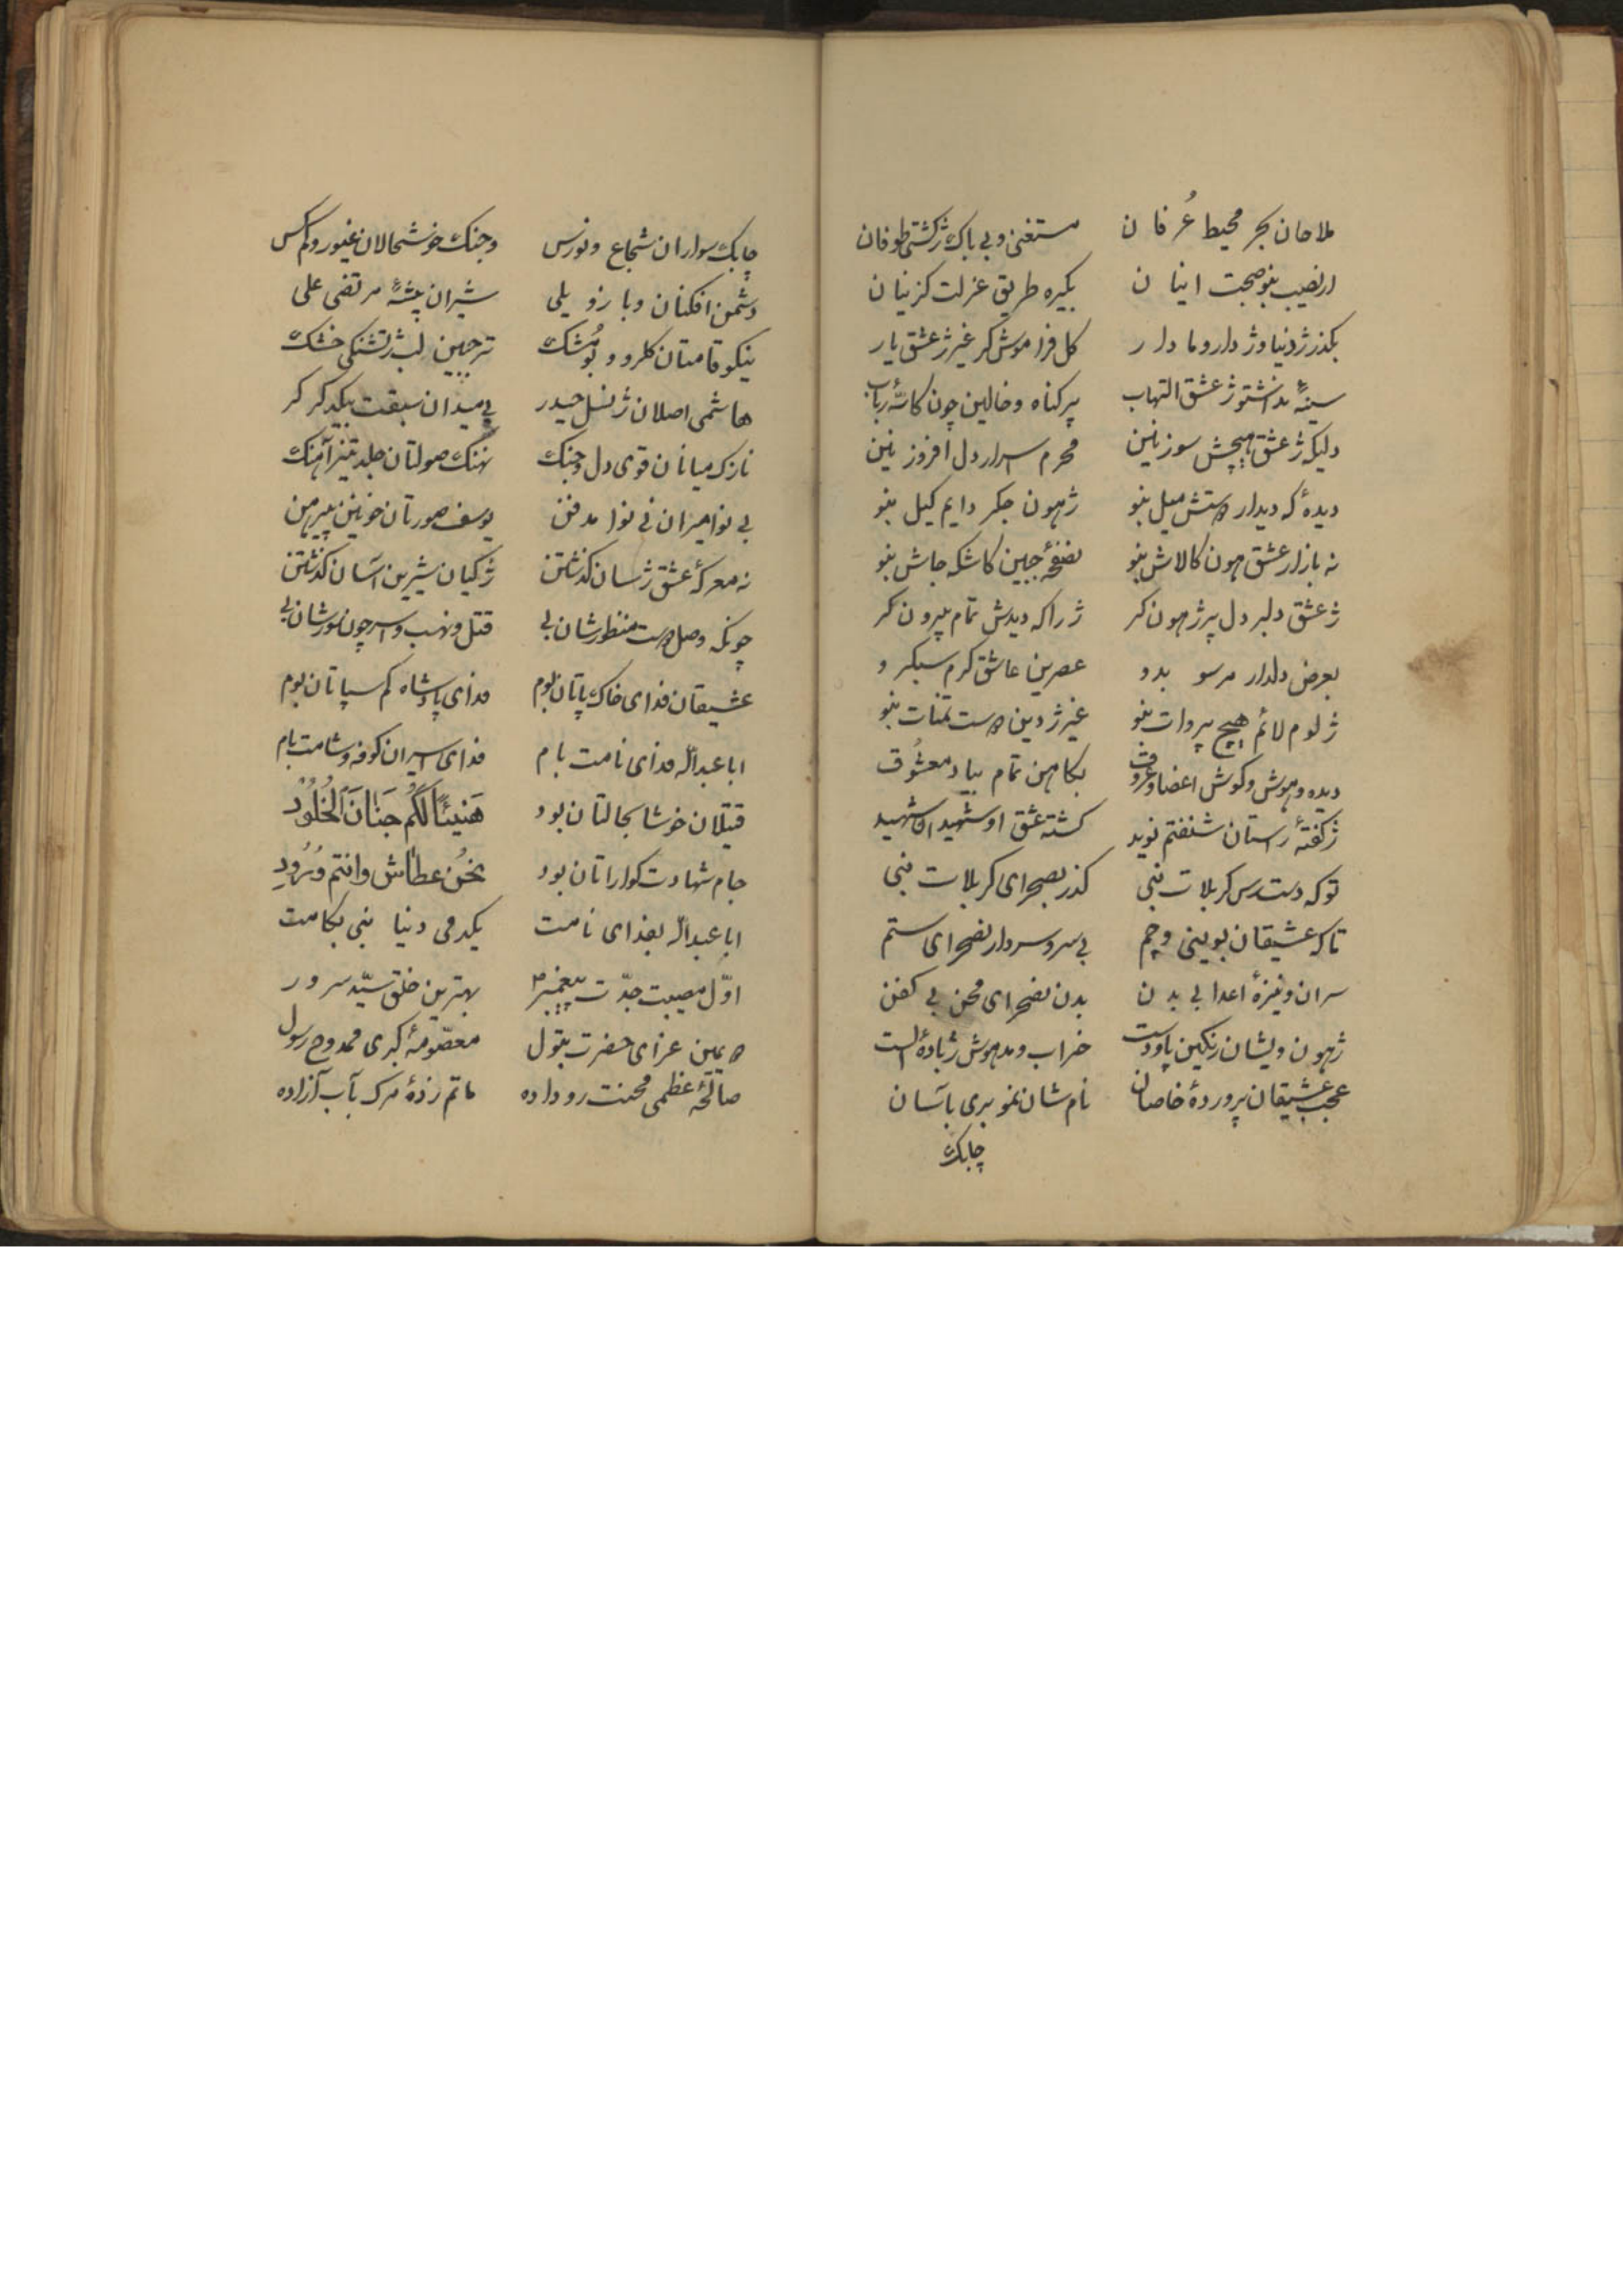 ملاحان بحر محیط عُرفان مستغنی و بی باک ژ کشتی طوفان
ار نصیب بنو صحبت اینان بگیره طریق عزلت گزینان
بگذر ژ دنیا و ژ دار و مادار کل فراموش کر غیر ژ عشق یار
سینهٔ نداشتو ژ عشق التهاب پر گناه و خالین چون کاسهٔ رباب
دلیکه ژ عشق هیچش سوز نین محرم اسرار دل افروز نین
دیدهٔ که دیدار دوستش میل بنو ژ هون جگر دایم کیل بنو
نه بازار عشق هون کالاش بنو نصفحهٔ جبین کاشکه جاش بنو
ژ عشق دلبر دل پر ژ هون کر ژ راکه دیدش تمام بیرون کر
بعرض دلدار مرسو بدو عصرین عاشق کرم سبکرو
ژ لوم لائم هیچ پروات بنو غیر ژ دین دوست تمنات بنو
دیده و هوش و گوش اعضا و عروق بکاهن تمام بیاد معشُوق
ژ گفتهٔ راستان شنفتم نوید کشته عشق او شهید او شهید
تو که دسترس کربلات نبی گذر بصحرای کربلات نبی
تاکه عشیقان بوینی و چم بی سر و سردار نصحرای ستم
سران و نیزهٔ اعدا بی بدن بدن نصحرای محن بی کفن
ژ هون ویشان رنگین پا و دست خراب و مدهوش ژ بادهٔ الست
عجب عشیقان پروردهٔ خاصان نام شان نمو بری بآسان
چابک
چابک سواران شجاع و نورس و جنگ خوشحالان غیور و کمکس
دشمن افکنان و بازو یلی شیران بیشهٔ مرتضی علی
نیکو قامتان گلرو و بو مُشک تر جبین لب ژ تشنگی خشک
هاشمی اصلان ژ نسل حیدر پی میدان سبقت بیکدگر کر
نازک میانان قوی دل و جنگ نهنگ صولتان جلد تیز آهنگ
بی نوا میران نی نوا مدفن یوسف صورتان خونین پیرهن
نه معرکهٔ عشق ژ سان گذشتن ژ گیان شیرین آسان گذشتن
چونکه وصل دوست منظورشان بی قتل و نهب و اسر چون سورشان بی
عشیقان فدای خاک پاتان بوم فدای پادشاه کم سپاتان بوم
ابا عبدالله فدای نامت بام فدای اسیران کوفه و شامت بام
قتیلان خوشا بحالتان بود هَنیئًا لَکُم جَنانَ الخُلُوُد
جام شهادت گواراتان بود نحُن عطاش وانتم وُرُودِ
ابا عبدالله بفدای نامت یکدمی دنیا نبی بکامت
اوّل مصیبت جدّت پیغمبر بهترین خلق سیّد سرور
دویمین عزای حضرت بتول معصُومهٔ کبری ممدوح رسول
صالحهٔ عظمی محنت رو داده ماتم زدهٔ مرگ باب آزاده